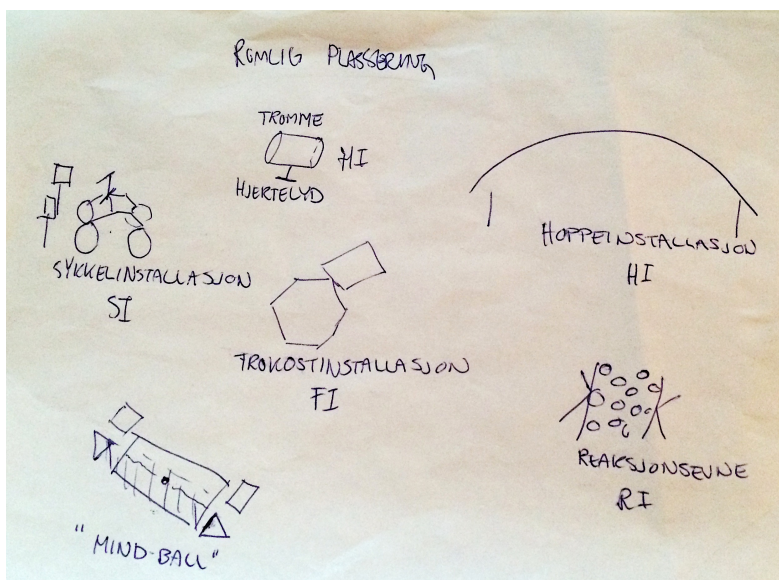 ROMLIG PLASSERING
TROMME
HI
HJERTELYD
HOPPEINSTALLASJON
HI
SYKKELINSTALLASJON
SI
FROKOSTINSTALLASJON
FI
REAKSJONSEVNE
RI
"MIND-BALL"